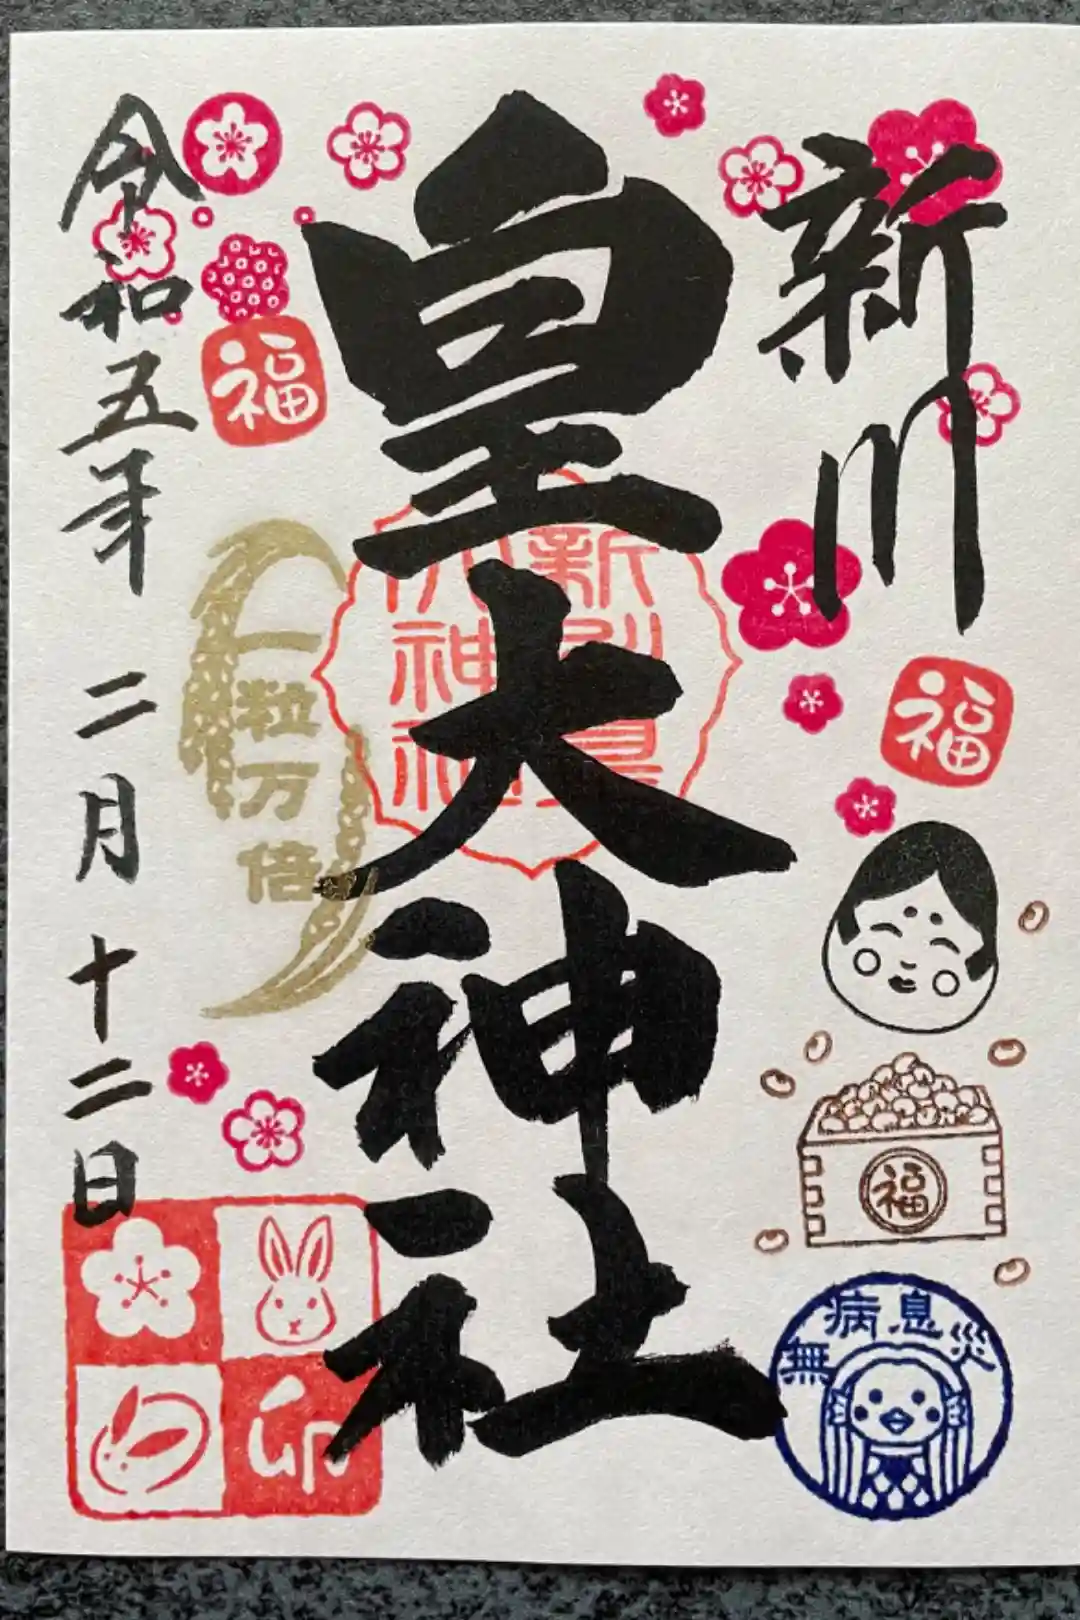 新川
皇大神社
令和五年 二月 十二日
福
福
福
一粒万倍
無病息災
卯